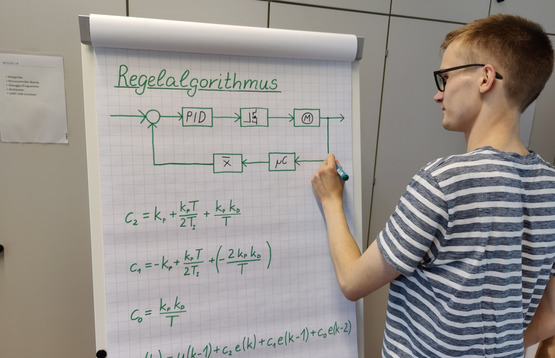 Regelalgorithmus
PID
M
x̄
μC
c₂ = kₚ + kₚT/2Tᵢ + kₚk_D/T
c₁ = -kₚ + kₚT/2Tᵢ + (- 2kₚk_D/T)
c₀ = kₚk_D/T
u(k-1) + c₂e(k) + c₁e(k-1) + c₀e(k-2)